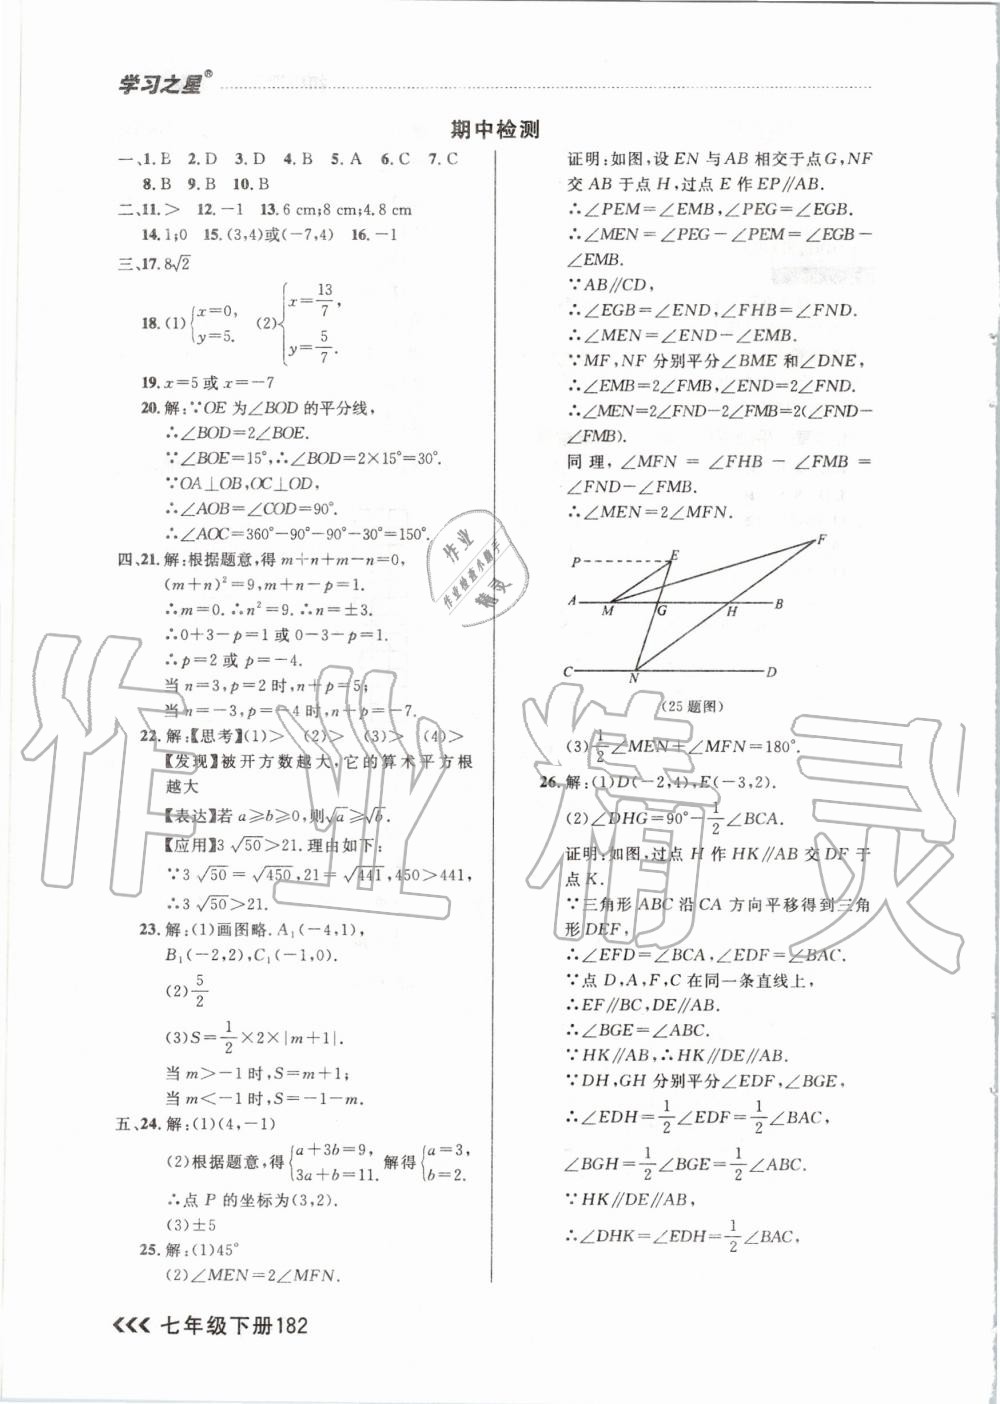 学习之星®
期中检测
一、1.B 2.D 3.D 4.B 5.A 6.C 7.C
8.B 9.B 10.B
二、11.> 12.-1 13.6 cm;8 cm;4.8 cm
14.1;0 15.(3,4)或(-7,4) 16.-1
三、17.8√2
18.(1){x=0, y=5. (2){x=13/7, y=5/7.
19.x=5或x=-7
20.解:∵OE为∠BOD的平分线,
∴∠BOD=2∠BOE.
∵∠BOE=15°,∴∠BOD=2×15°=30°.
∵OA⊥OB,OC⊥OD,
∴∠AOB=∠COD=90°.
∴∠AOC=360°-90°-90°-30°=150°.
四、21.解:根据题意,得m+n+m-n=0,
(m+n)²=9,m+n-p=1.
∴m=0.∴n²=9.∴n=±3.
∴0+3-p=1或0-3-p=1.
∴p=2或p=-4.
当n=3,p=2时,n+p=5;
当n=-3,p=-4时,n+p=-7.
22.解:【思考】(1)> (2)> (3)> (4)>
【发现】被开方数越大,它的算术平方根
越大
【表达】若a≥b≥0,则√a≥√b.
【应用】3√50>21.理由如下:
∵3√50=√450,21=√441,450>441,
∴3√50>21.
23.解:(1)画图略.A₁(-4,1),
B₁(-2,2),C₁(-1,0).
(2)5/2
(3)S=1/2×2×|m+1|.
当m>-1时,S=m+1;
当m<-1时,S=-1-m.
五、24.解:(1)(4,-1)
(2)根据题意,得{a+3b=9, 3a+b=11. 解得{a=3, b=2.
∴点P的坐标为(3,2).
(3)±5
25.解:(1)45°
(2)∠MEN=2∠MFN.
证明:如图,设EN与AB相交于点G,NF
交AB于点H,过点E作EP∥AB.
∴∠PEM=∠EMB,∠PEG=∠EGB.
∴∠MEN=∠PEG-∠PEM=∠EGB-
∠EMB.
∵AB∥CD,
∴∠EGB=∠END,∠FHB=∠FND.
∴∠MEN=∠END-∠EMB.
∵MF,NF分别平分∠BME和∠DNE,
∴∠EMB=2∠FMB,∠END=2∠FND.
∴∠MEN=2∠FND-2∠FMB=2(∠FND-
∠FMB).
同理,∠MFN=∠FHB-∠FMB=
∠FND-∠FMB.
∴∠MEN=2∠MFN.
F
P E
A M G H B
C N D
(25题图)
(3)1/2∠MEN+∠MFN=180°.
26.解:(1)D(-2,4),E(-3,2).
(2)∠DHG=90°-1/2∠BCA.
证明:如图,过点H作HK∥AB交DF于
点K.
∵三角形ABC沿CA方向平移得到三角
形DEF,
∴∠EFD=∠BCA,∠EDF=∠BAC.
∵点D,A,F,C在同一条直线上,
∴EF∥BC,DE∥AB.
∴∠BGE=∠ABC.
∵HK∥AB,∴HK∥DE∥AB.
∵DH,GH分别平分∠EDF,∠BGE,
∴∠EDH=1/2∠EDF=1/2∠BAC,
∠BGH=1/2∠BGE=1/2∠ABC.
∵HK∥DE∥AB,
∴∠DHK=∠EDH=1/2∠BAC,
作业
作业检查小助手
精灵
作业精灵
七年级下册182